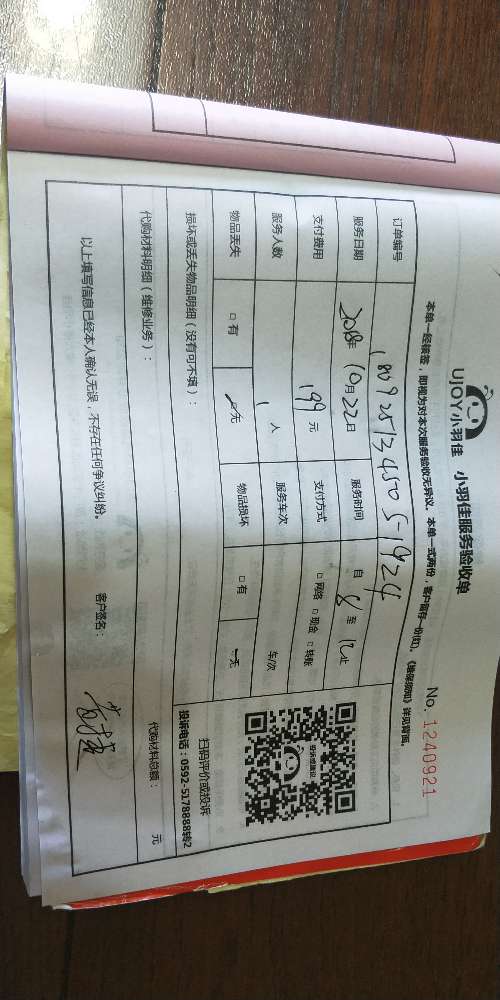 UJOY小羽佳 小羽佳服务验收单
No. 1240921
本单一经核签，即视为对本次服务验收无异议。本单一式两份，客户留存一份(红)。《维保须知》详见背面。
订单编号 1809251345051924
服务日期 2018年 10月22日 服务时间 自 8 至 12止
支付费用 199元 支付方式 □网络 □现金 □转账
服务人数 1 人 服务车次 车/次
物品丢失 □有 □无 物品损坏 □有 无
损坏或丢失物品明细（没有可不填）：
扫码评价或投诉
投诉电话：0592-5178888转2
代购材料明细（维修业务）：
代购材料总额： 元
以上填写信息已经本人确认无误，不存在任何争议纠纷。 客户签名：